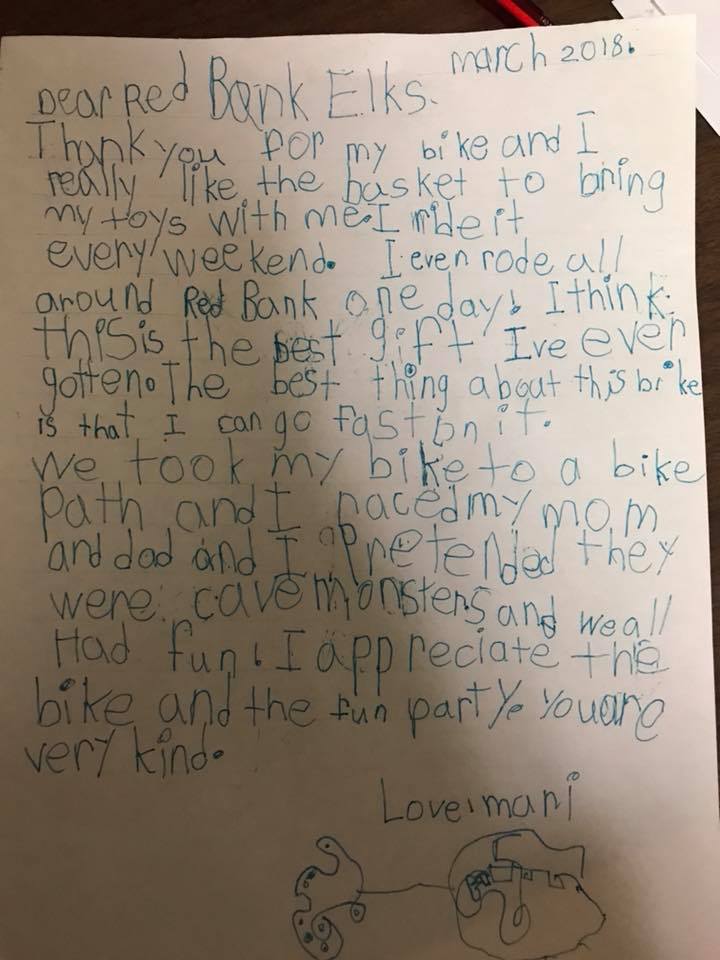 march 2018.
Dear Red Bank Elks.
Thank you for my bike and I
really like the basket to bring
my toys with me. I ride it
every weekend. I even rode all
around Red Bank one day! I think
this is the best gift Ive ever
gotten. The best thing about this bike
is that I can go fast on it.
We took my bike to a bike
path and I raced my mom
and dad and I pretended they
were cave monsters and we all
Had fun! I appreciate the
bike and the fun party. You are
very kind.
Love, mani